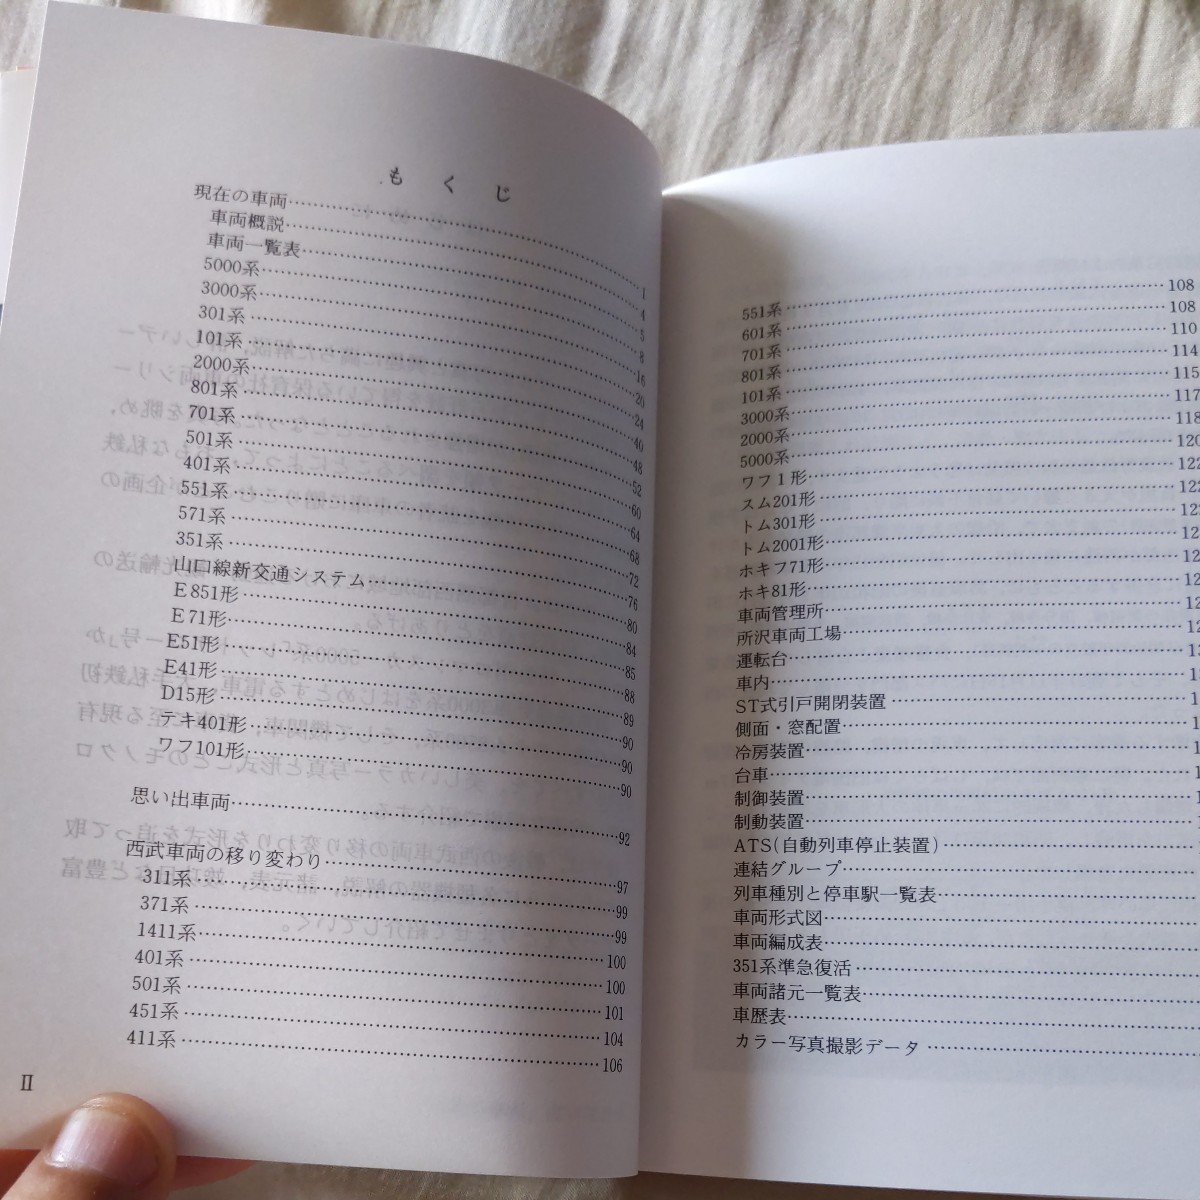 もくじ
現在の車両……………1
車両概説……………4
車両一覧表……………5
5000系……………8
3000系……………16
301系……………20
101系……………24
2000系……………40
801系……………48
701系……………52
501系……………60
401系……………64
551系……………68
571系……………72
351系……………76
山口線新交通システム……………80
E851形……………84
E71形……………85
E51形……………88
E41形……………89
D15形……………90
テキ401形……………90
ワフ101形……………90
思い出車両……………92
西武車両の移り変わり……………97
311系……………99
371系……………99
1411系……………100
401系……………100
501系……………101
451系……………104
411系……………106
II
551系……………108
601系……………108
701系……………110
801系……………114
101系……………115
3000系……………117
2000系……………118
5000系……………120
ワフ1形……………122
スム201形……………122
トム301形……………12
トム2001形……………12
ホキフ71形……………12
ホキ81形……………12
車両管理所……………12
所沢車両工場……………12
運転台……………13
車内……………1
ST式引戸開閉装置……………1
側面・窓配置……………1
冷房装置……………1
台車……………1
制御装置……………
制動装置……………
ATS(自動列車停止装置)……………
連結グループ……………
列車種別と停車駅一覧表……………
車両形式図……………
車両編成表……………
351系準急復活……………
車両諸元一覧表……………
車歴表……………
カラー写真撮影データ……………